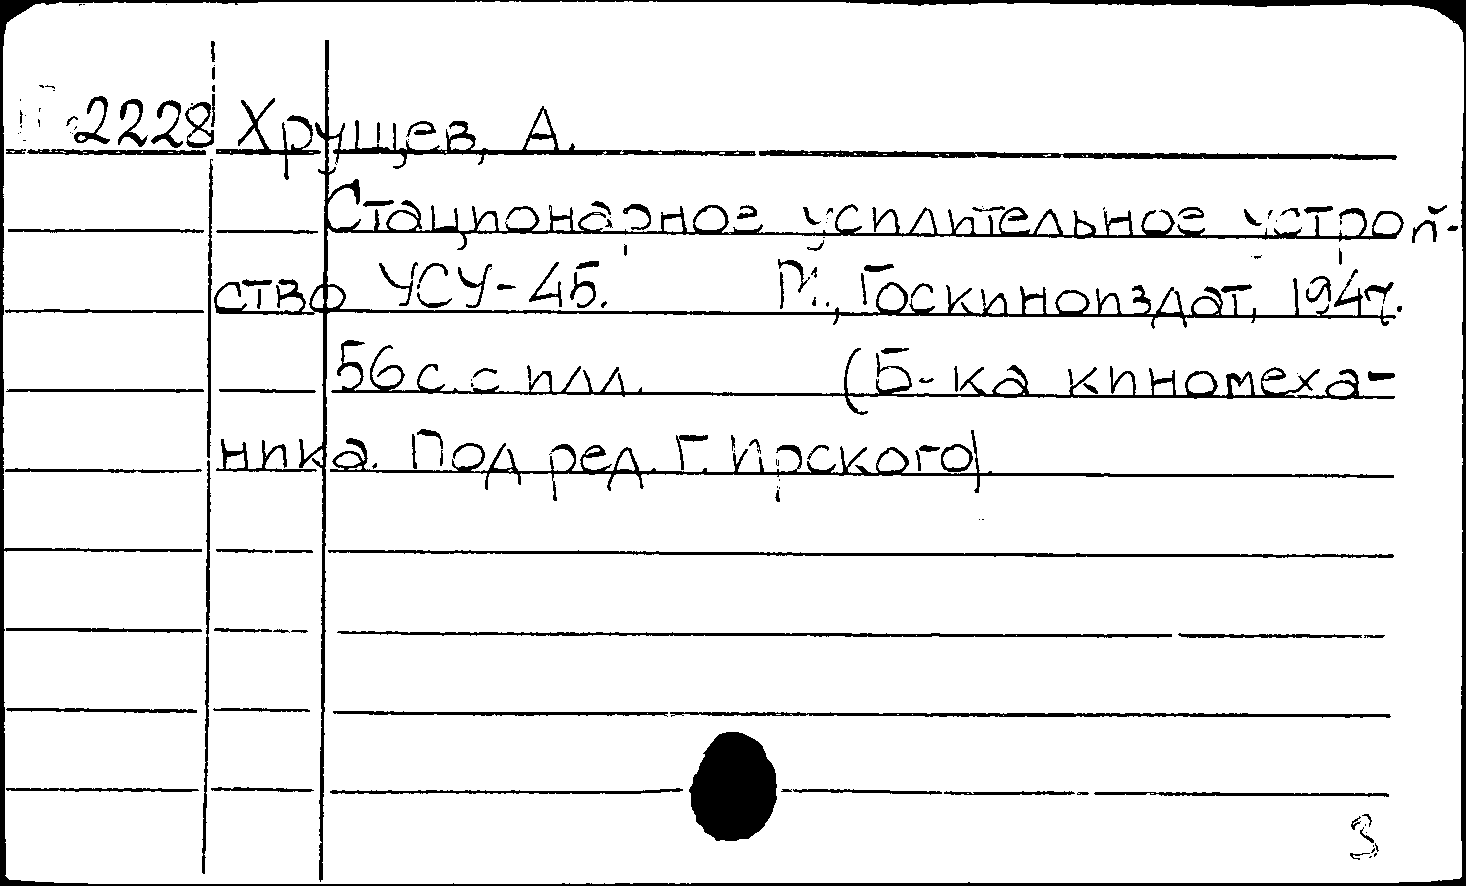 2228 Хрущев, А.
Стационарное усилительное устрой-
ство УСУ-45. М., Госкиноиздат, 1947.
56 с. с илл. (Б-ка кинмеха-
ника. Под ред. Г. Ирского).
3